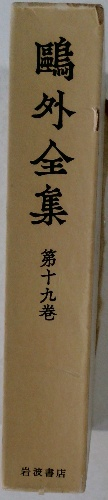 鷗外全集
第十九巻
岩波書店